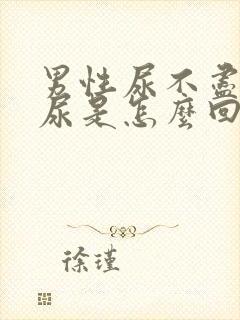 男性尿不盡
尿是怎麼回
徐瑾